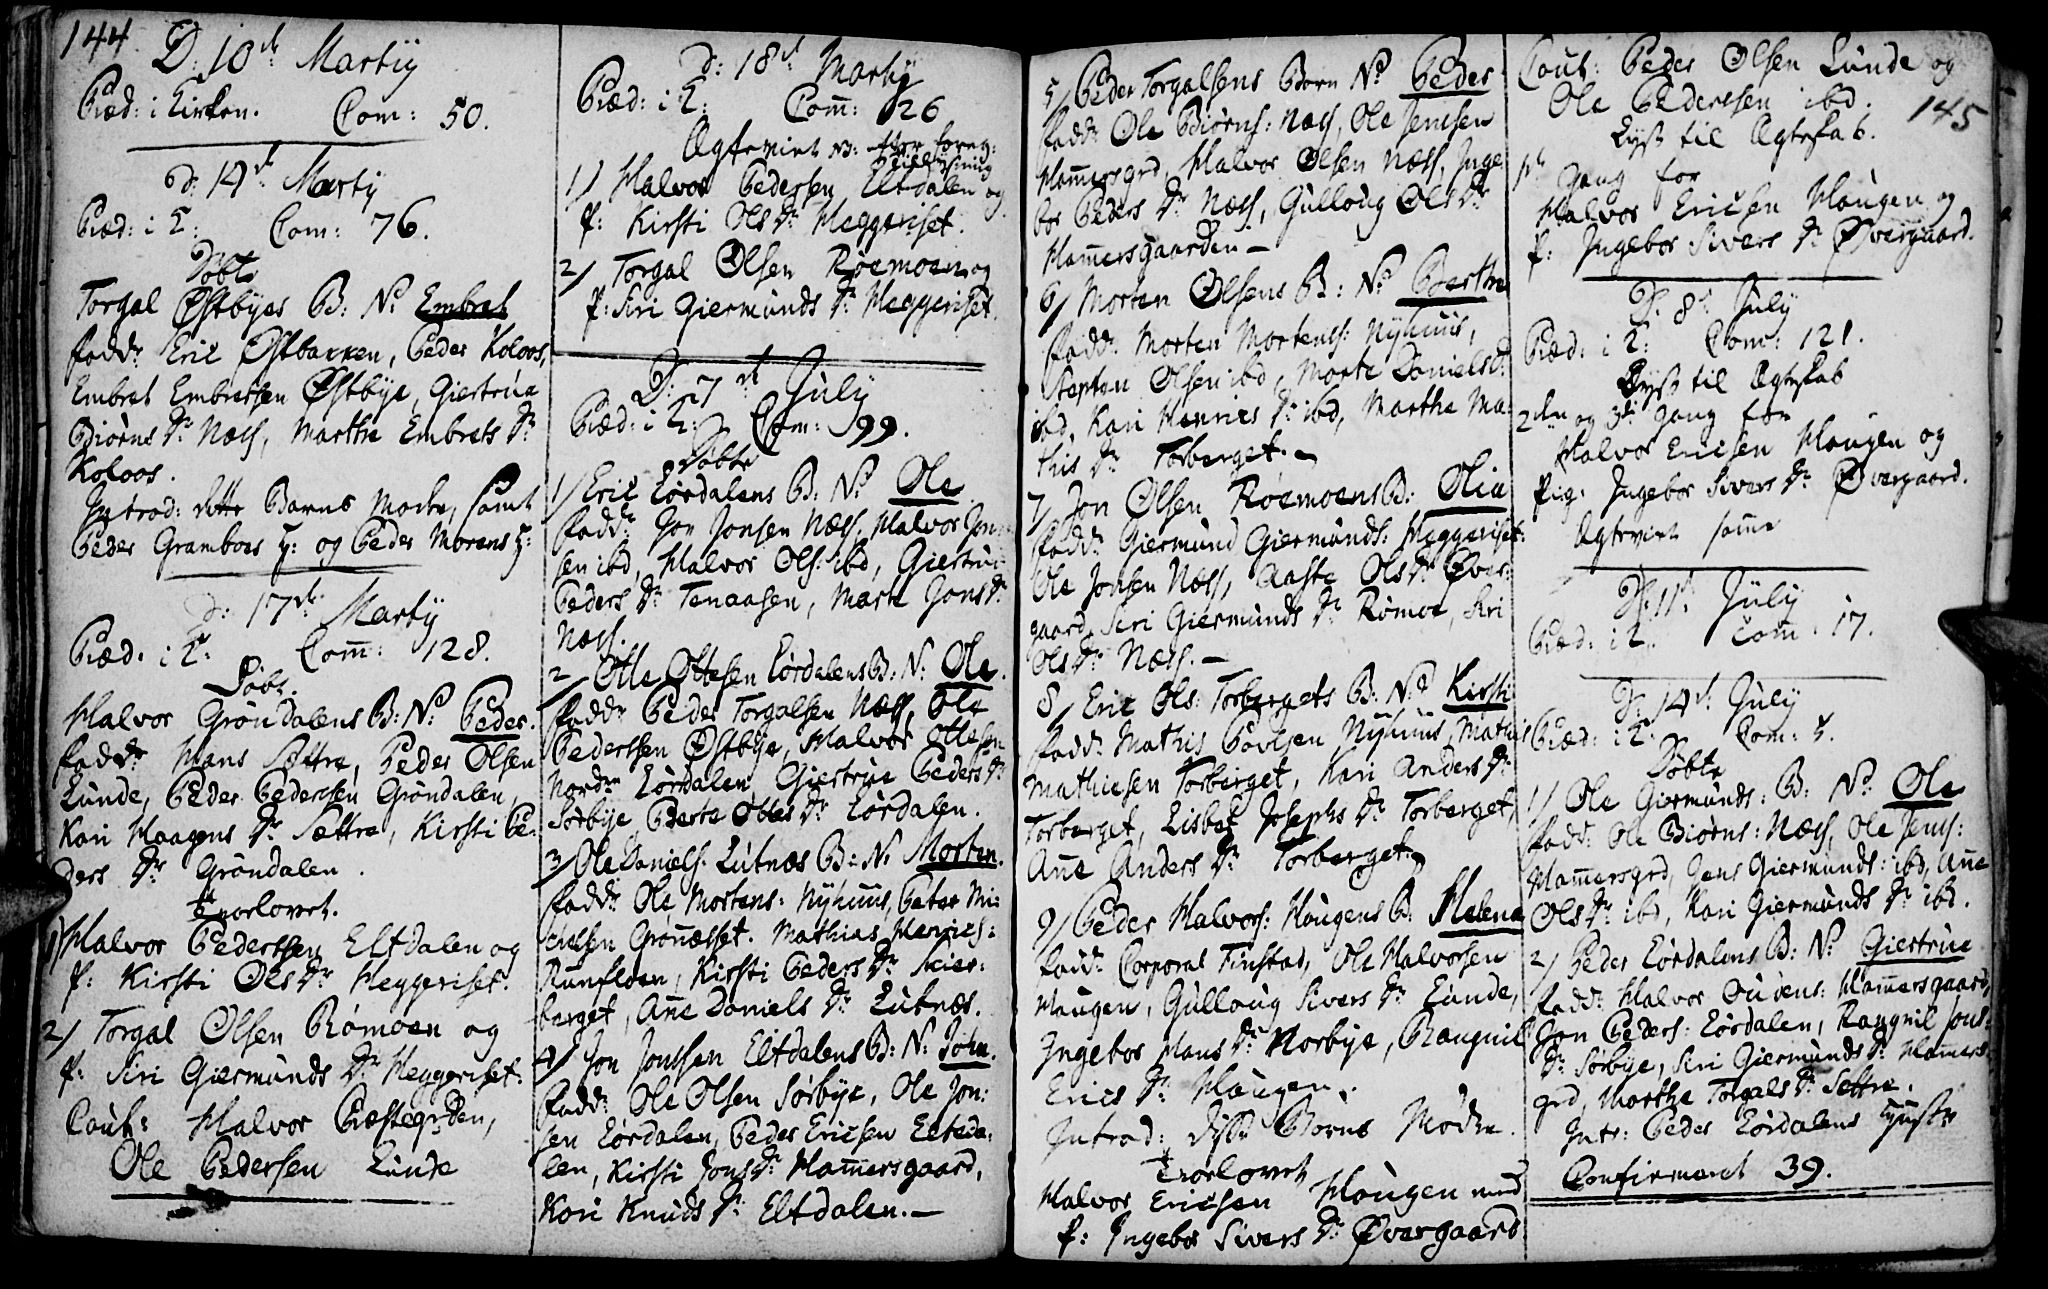 144.
D: 10de Martij
Præd: i Kirken. Com: 50.
D: 14de Martij
Præd: i K: Com: 76.
Døbte
Torgal Østbyes B: No Embret
Fadd: Eric Østbakken, Peder Koloos,
Embret Embretsen Østbye, Giertrue
Biørns Dr Næss, Marthe Embrets Dr
Koloos.
Introd: dette Barns Moder, samt
Peder Gramboes H: og Peder Morens H:
D: 17de Martij
Præd: i K: Com̄: 128.
Døbt.
Halvor Grøndalens B: No: Peder.
Fadd: Hans Sættre, Peder Olsen
Lunde, Peder Pedersen Grøndalen,
Kari Haagens Dr Sættre, Kirsti Pe-
ders Dr Grøndalen.
Trorlovet.
1) Halvor Pederssen Eltdalen og
P: Kirsti Ols Dr Heggeriset.
2) Torgal Olsen Rømoen og
P: Siri Giermunds Dr Heggeriset:
Caut: Halvor Præstegrden,
Ole Pedersen Lunde
D: 18de Martij
Præd: i K: Com̄: 26
Ægteviet NB: efter foreg:
Tillysning
1) Halvor Pedersen Eltdalen og
P: Kirsti Ols Dr Heggeriset.
2) Torgal Olsen Roemoen og
P: Siri Giermunds Dr Heggeriset.
D: 7de July
Præd: i K: Com: 99.
Døbte
1) Eric Lørdalens B: No. Ole
Fadd: Jon Jonsen Næss, Halvor Jon-
sen ibd, Halvor Ols: ibd, Giertrue
Peders Dr Tenaasen, Marte Jons Dr
Næss.
2) Otte Ottesen Lørdalens B: N: Ole.
Fadd: Peder Torgalsen Næss, Ole
Pederssen Østbye, Halvor Ottesen
Nordre Lørdalen, Giertrue Peders Dr
Sørbye Berte Ottes Dr Lørdalen.
3) Ole Daniels: Lutnæs B: No Morten.
Fadd: Ole Mortens: Nyhuus, Peter Mi-
chelsen Grønæsset. Mathias Henrics:
Runfloen, Kirsti Peders Dr Skier-
berget, Ane Daniels Dr Lutnæs.
4) Jon Jonssen Eltdalens B: N: John.
Fadd: Ole Olsen Sørbye, Ole Jon:
sen Lørdalen, Peder Ericsen Eltda-
len, Kirsti Jons Dr Ham̄ersgaard,
Kari Knuds Dr Eltdalen.—
5) Peder Torgalsens Barn No Peder
Fadd: Ole Biørns: Næss, Ole Jenssen
Ham̄ersgrd, Halvor Olsen Næss, Inge-
bor Peders Dr Næss, Gulloug Ols Dr
Ham̄ersgaarden—
6) Morten Olsens B: No Berthe
Fadd: Morten Mortenss: Nyhuus,
Steptan Olsen ibd, Marte Daniels Dr
ibd, Kari Henrics Dr ibd, Marthe Ma-
this Dr Torberget.—
7) Jon Olsen Roemoens B: Olia
Fadd: Giermund Giermunds: Heggeriset:
Ole Jonsen Næss, Aaste Ols Dr Øver-
gaard, Siri Giermunds Dr Rømoe, Siri
Ols Dr Næss.—
8) Eric Ols: Torbergets B: No Kirsti
Fadd: Mathis Povlsen Nyhuus, Mathis
Mathiesen Torberget, Kari Anders Dr
Torberget, Lisbet Josephs Dr Torberget,
Ane Anders Dr Torberget.
9) Peder Halvors: Haugens B: Helena
Fadd: Corporal Finstad, Ole Halvorsen
Haugen, Gulloug Sivers Dr Lunde,
Ingebor Hans Dr Norbye, Raugnil
Erics Dr Haugen.
Introd: disse Børns Mødre.
Trorlovet
Halvor Ericsen Haugen med
P: Ingebor Sivers Dr Øvergaard
Caut: Peder Olsen Lunde og
Ole Pederssen ibd.
145
Lyst til Ægteskab.
1te Gang for
Halvor Ericsen Haugen og
P: Ingebor Sivers Dr Øvergaard.
D: 8de July
Præd: i K: Com: 121.
Lyst til Ægteskab
2den og 3die Gang for
Halvor Ericsen Haugen og
Pig: Ingebor Sivers Dr Øvergaard.
Ægteviet samme
D: 11te July
Præd: i K. Com: 17.
D: 14de July
Præd: i K: Com: 4.
Døbte
1) Ole Giermunds: B: No. Ole
Fadd: Ole Biørns: Næss, Ole Jens:
Ham̄ersgrd, Jens Giermunds: ibd, Ane
Ols Dr ibd, Kari Giermunds Dr ibd.
2) Peder Lørdalens B: No Giertrue
Fadd: Halvor Oudens: Ham̄ersgaard,
Jon Peders: Lørdalen, Raugnil Jons:
Dr Sørbye, Siri Giermunds Dr Ham̄ers-
grd, Marthe Torgals Dr Sættre.
Intr: Peder Lørdalens Hustr
Confirmeret 39.